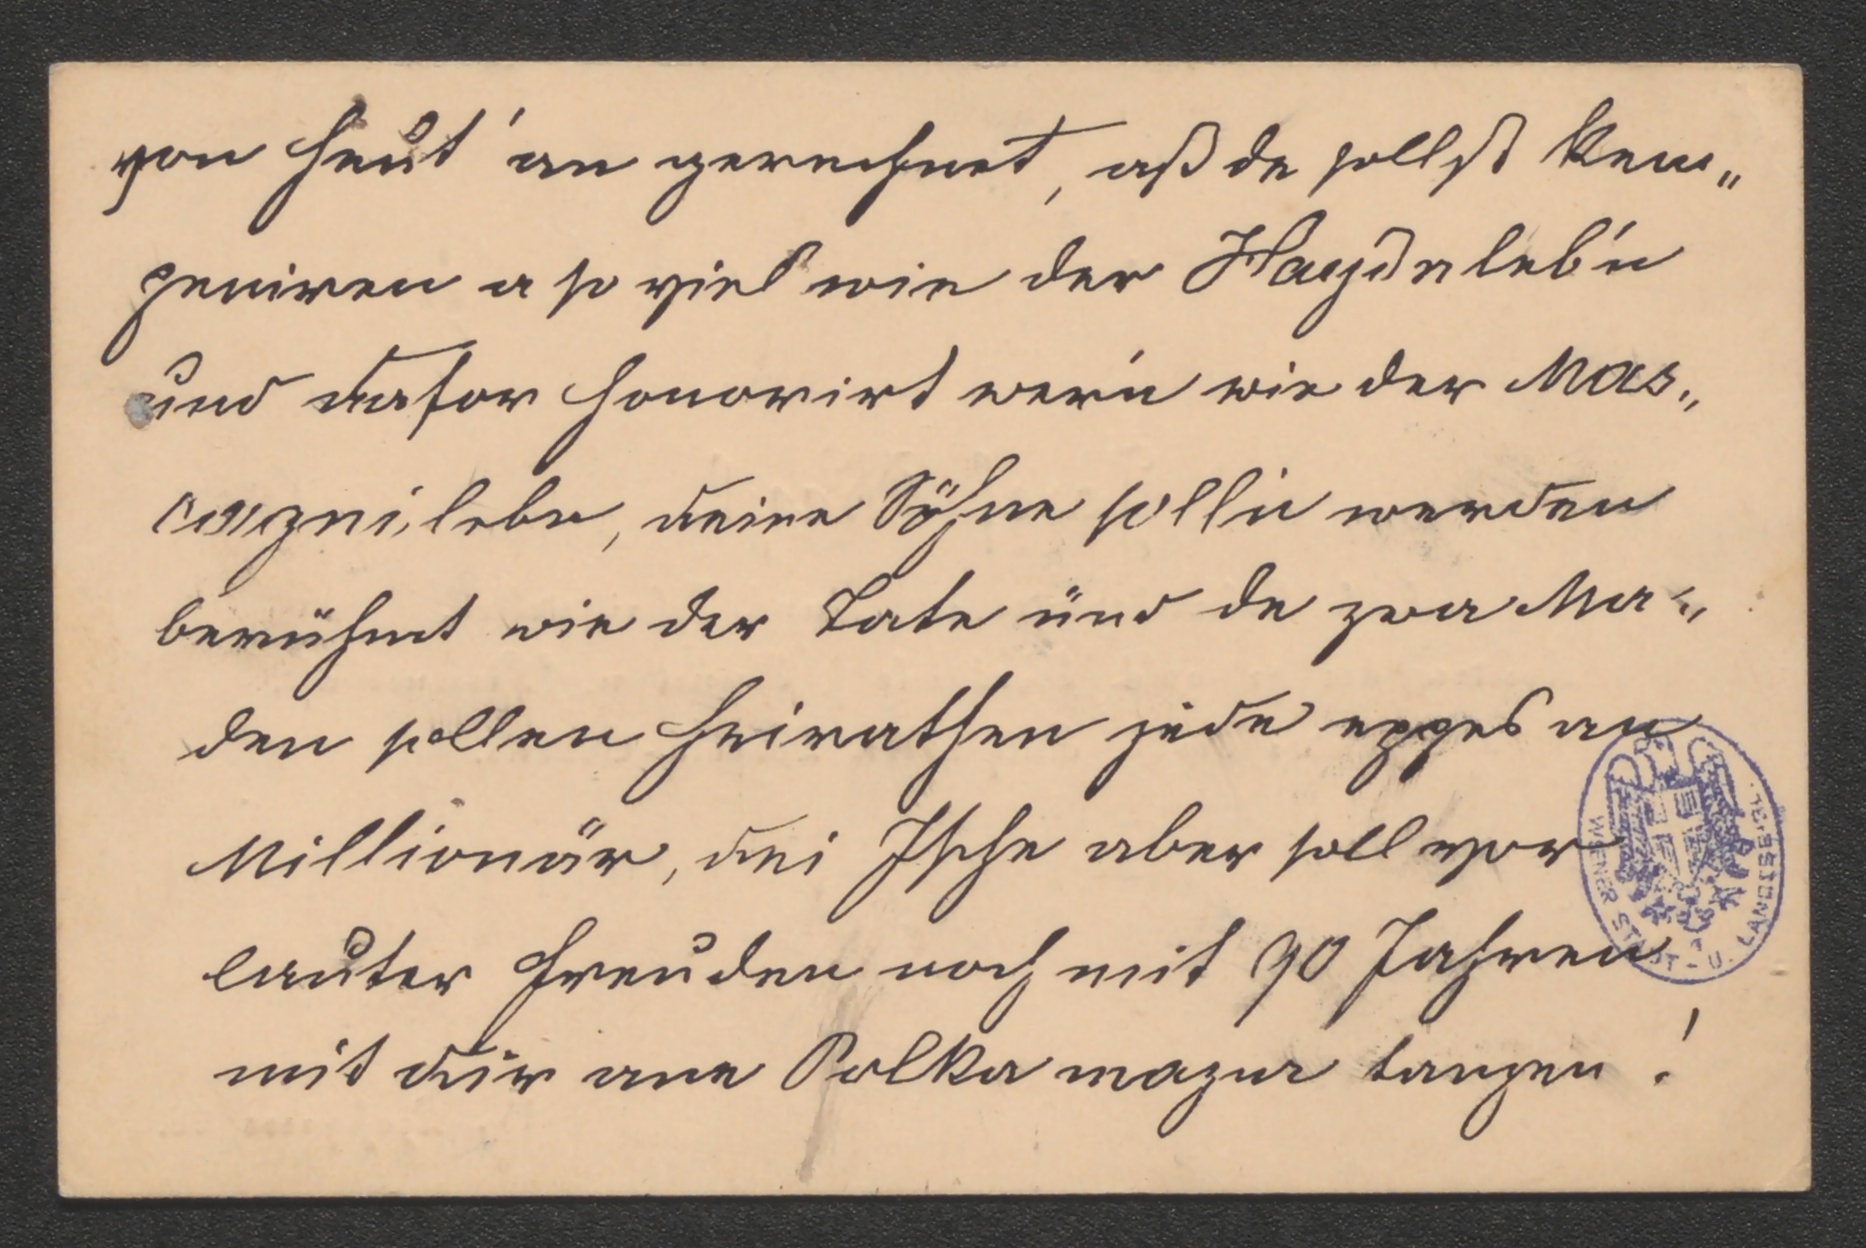 von heut' an gerechnet, aß de sollst Kem„
peniren a so viel wie der Haydnleb'n
und dafor honorirt wer'n wie der Mas„
cagnileben, deine Söhne soll'n werden
berühmt wie der Tate und de zwa Ma„
den sollen heirathen jede eppes an
Millionär, dei Ische aber soll vor
lauter Freuden noch mit 90 Jahren
mit dir ane Polka mazur tanzen!
WIENER STADT- U. LANDESBIBL.